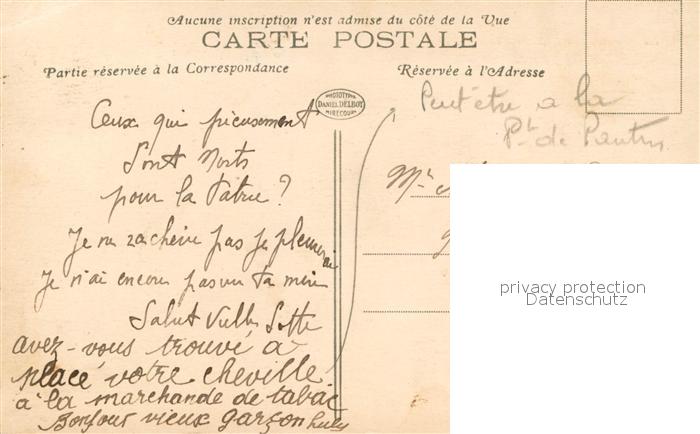 Aucune inscription n'est admise du côté de la Vue
CARTE POSTALE
Partie réservée à la Correspondance
Réservée à l'Adresse
PHOTOTYPIE
DANIEL DELBOY
MIRECOURT
Peut être a la
Pte de Pantin
Ceux qui pieusement
Sont Morts
pour la Patrie ?
Je n'a pas je pleurerai
Je n'ai encore pas vu ta mère
Salut Sotte
avez-vous trouvé à
placé votre cheville
à la marchande de tabac
Bonjour vieux garçon
Mr
privacy protection
Datenschutz